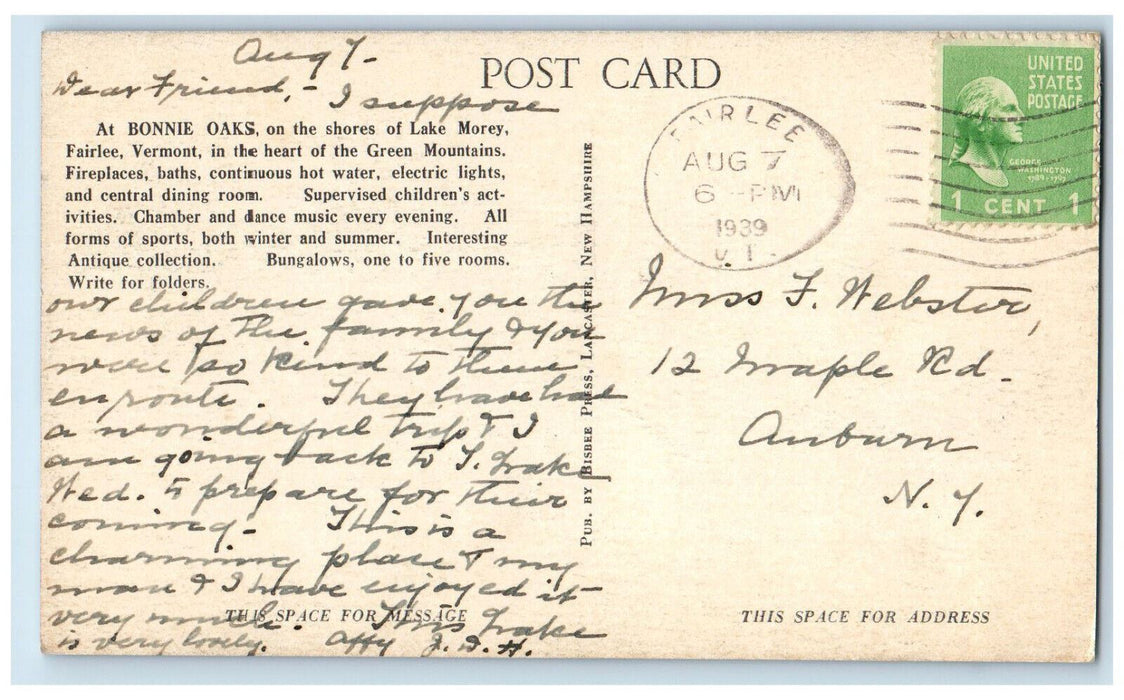 Aug 7-
Dear Friend,- I suppose
POST CARD
UNITED
STATES
POSTAGE
GEORGE
WASHINGTON
1789-1797
1 CENT 1
FAIRLEE
AUG 7
6 - PM
1939
VT.
At BONNIE OAKS, on the shores of Lake Morey,
Fairlee, Vermont, in the heart of the Green Mountains.
Fireplaces, baths, continuous hot water, electric lights,
and central dining room. Supervised children's act-
ivities. Chamber and dance music every evening. All
forms of sports, both winter and summer. Interesting
Antique collection. Bungalows, one to five rooms.
Write for folders.
our children gave you the
news of the family & you
were so kind to them
en route. They have had
a wonderful trip & I
am going back to S. Lake
Wed. to prepare for their
coming- This is a
charming place & my
man & I have enjoyed it
very much. This Lake
is very lovely. Affy J. D. H.
THIS SPACE FOR MESSAGE
PUB. BY BISBEE PRESS, LANCASTER, NEW HAMPSHIRE
Miss F. Webster,
12 Maple Rd.
Auburn
N. Y.
THIS SPACE FOR ADDRESS